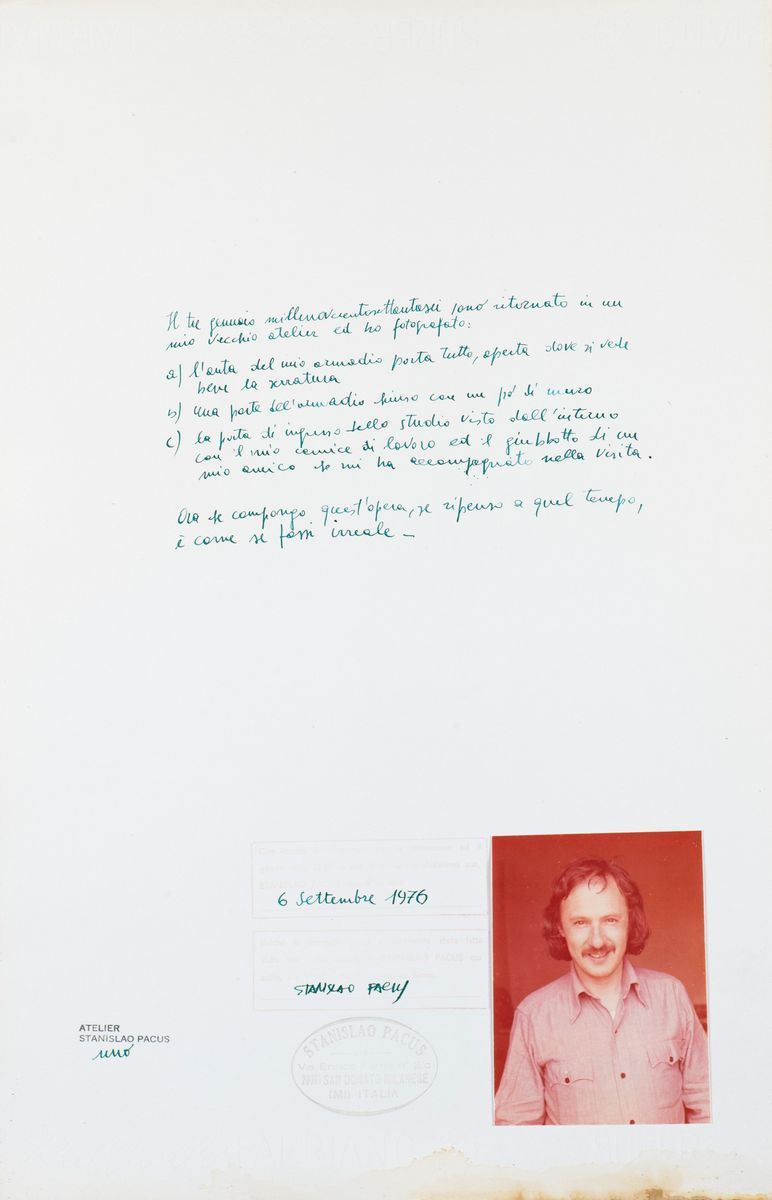 Il tre gennaio millenovecentosettantasei sono ritornato in un
mio vecchio atelier ed ho fotografato:
a) l'anta del mio armadio porta tutto, aperta dove si vede
bene la serratura
b) una parte dell'armadio chiuso con un pó di muro
c) la porta di ingresso dello studio visto dall'interno
con il mio camice di lavoro ed il giubbotto di un
mio amico che mi ha accompagnato nella visita.
Ora che compongo quest'opera, se ripenso a quel tempo,
è come se fossi irreale _
6 Settembre 1976
STANISLAO PACUS
ATELIER
STANISLAO PACUS
uno
STANISLAO PACUS
SAN DONATO MILANESE
(MI) ITALIA